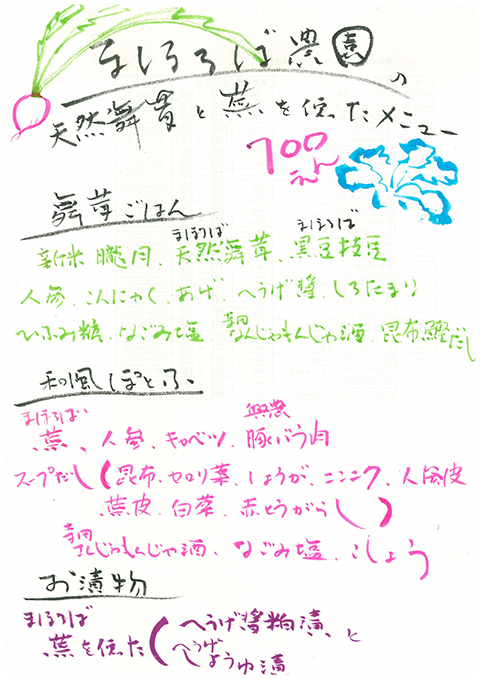 まほろば農園の
天然舞茸と蕪を使ったメニュー
700えん
舞茸ごはん
新米 朧月、まほろば天然舞茸、まほろば黒豆枝豆
人参、こんにゃく、あげ、へうげ醤、しろたまり
ひふみ糀、なごみ塩、寺田なんじゃもんじゃ酒、昆布鰹だし
和風ぽとふ
まほろば蕪、人参、キャベツ、無農豚バラ肉
スープだし(昆布、セロリ葉、しょうが、ニンニク、人参皮
蕪皮、白菜、赤とうがらし)
寺田なんじゃもんじゃ酒、なごみ塩、こしょう
お漬物
まほろば蕪を使った(へうげ醤粕漬、と
へうげしょうゆ漬